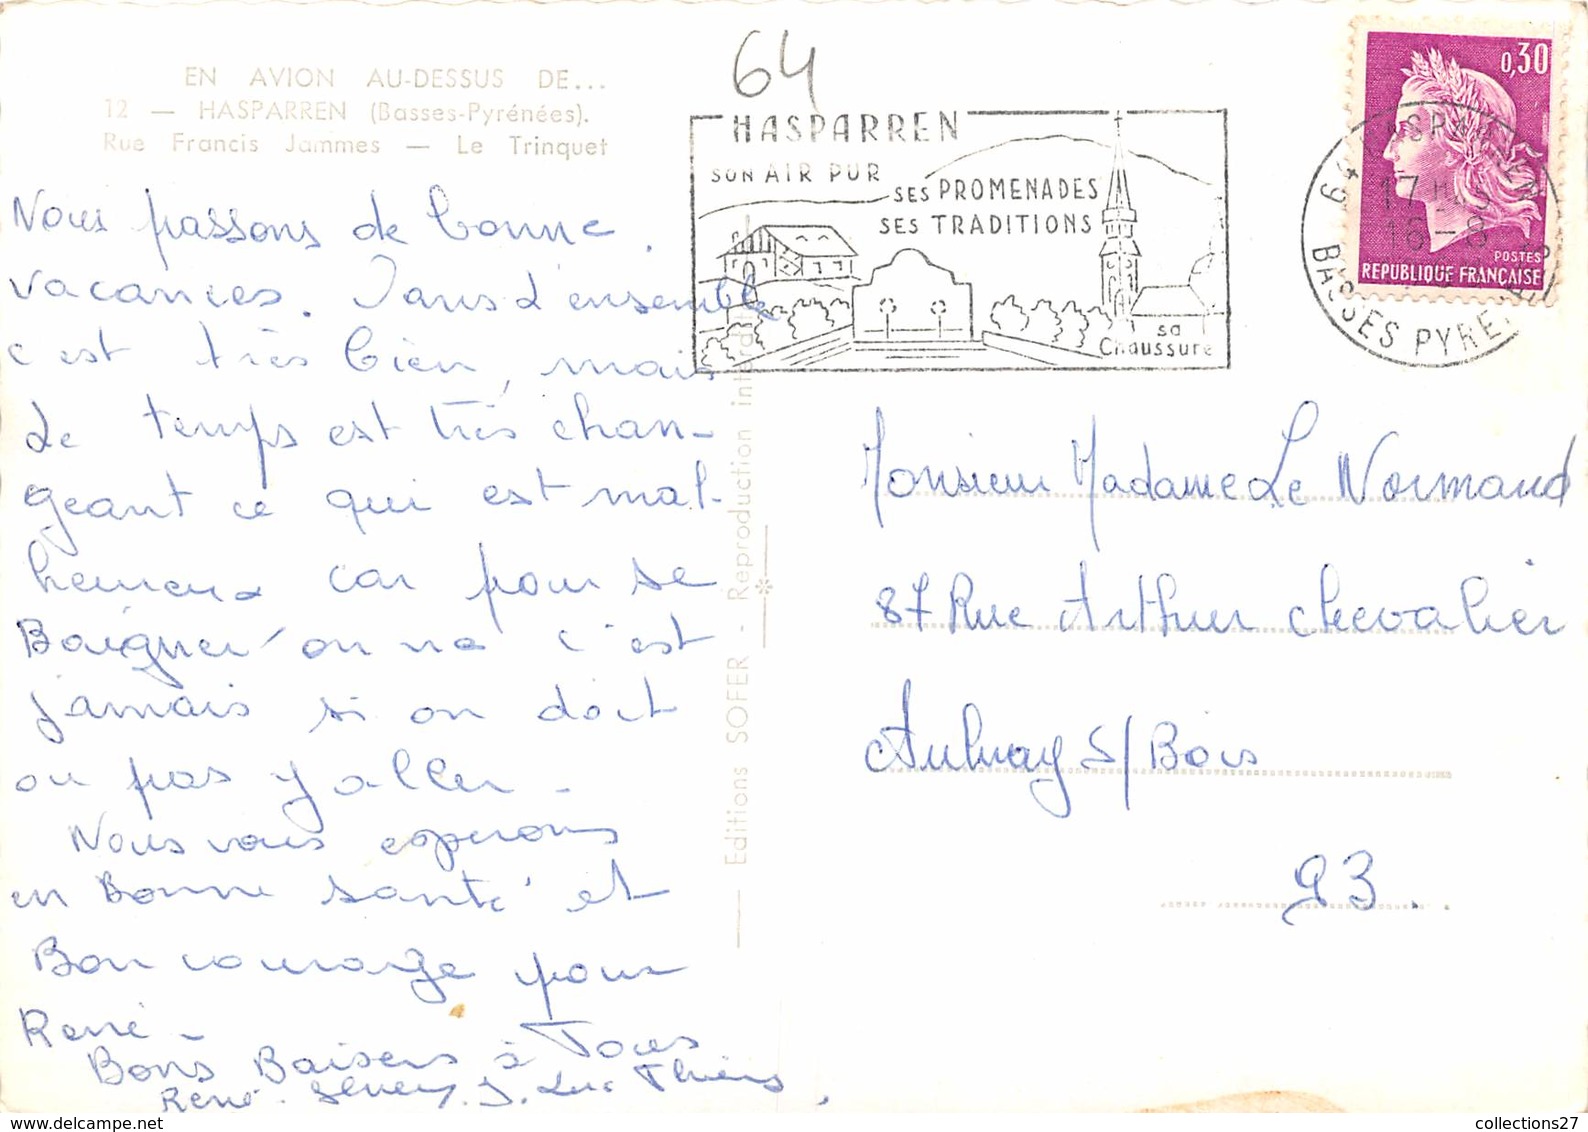 EN AVION AU-DESSUS DE...
12 — HASPARREN (Basses-Pyrénées).
Rue Francis Jammes — Le Trinquet
Nous passons de bonne
vacances. Dans l'ensemble
c'est très bien, mais
le temps est très chan-
geant ce qui est mal-
heureux car pour se
Baigner on ne c'est
jamais si on doit
ou pas y aller -
Nous vous esperons
en Bonne santé et
Bon courage pour
René -
Bons Baisers à Tous
René. J. Luc Thiery
Editions SOFER - Reproduction interdite
64
HASPARREN
SON AIR PUR
SES PROMENADES
SES TRADITIONS
sa
Chaussure
0,30
POSTES
REPUBLIQUE FRANÇAISE
64 HASPARREN
17 H
16-8
BASSES PYRENEES
Monsieur Madame Le Normand
87 Rue Arthur Chevalier
Aulnay S/Bois
93.
collections27